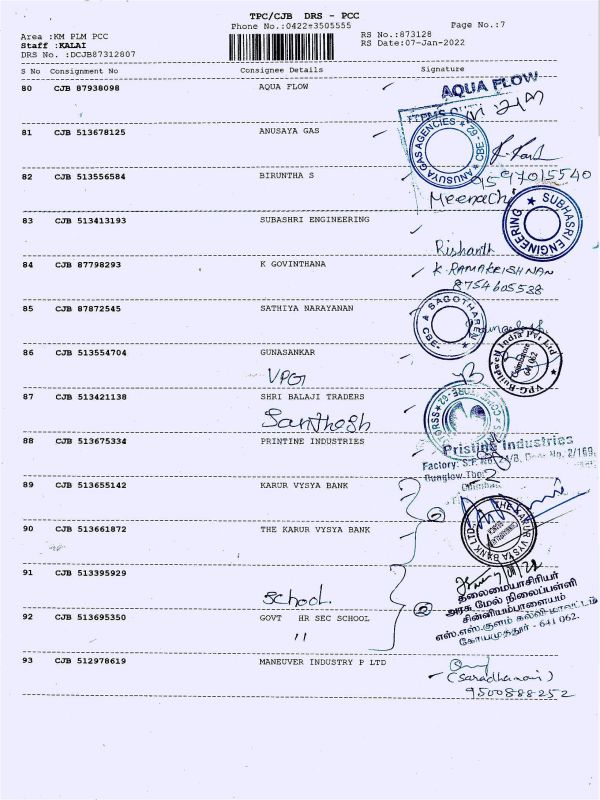 TPC/CJB DRS - PCC
Phone No.:0422±3505555
Page No.:7
Area :KM PLM PCC
RS No.:873128
Staff :KALAI
RS Date:07-Jan-2022
DRS No. :DCJB87312807
S No Consignment No Consignee Details Signature
80 CJB 87938098 AQUA FLOW
AQUA FLOW
81 CJB 513678125 ANUSAYA GAS
ANUSUYA GAS AGENCIES ★ CBE - 62 ★
82 CJB 513556584 BIRUNTHA S
9597015540
Meenachi
83 CJB 513413193 SUBASHRI ENGINEERING
★ SUBHASRI ENGINEERING
Rishanth
84 CJB 87798293 K GOVINTHANA
K. RAMAKRISHNAN
8754605538
85 CJB 87872545 SATHIYA NARAYANAN
A SAGOTHAREN
CBE-
86 CJB 513554704 GUNASANKAR
VPG Buildwell India Pvt Ltd ★
Coimbatore
641 062
VPG
87 CJB 513421138 SHRI BALAJI TRADERS
Santhosh
88 CJB 513675334 PRINTINE INDUSTRIES
Pristine Industries
Factory: S.F. No. 24/8, Door No. 2/169,
89 CJB 513655142 KARUR VYSYA BANK
THE KARUR VYSYA BANK LTD.
90 CJB 513661872 THE KARUR VYSYA BANK
91 CJB 513395929
School
தலைமையாசிரியர்
அரசு மேல் நிலைப்பள்ளி
சின்னியம்பாளையம்
எஸ்.எஸ்.குளம் கல்வி மாவட்டம்
கோயமுத்தூர் - 641 062.
92 CJB 513695350 GOVT HR SEC SCHOOL
11
93 CJB 512978619 MANEUVER INDUSTRY P LTD
(Saradhamani)
9500888252